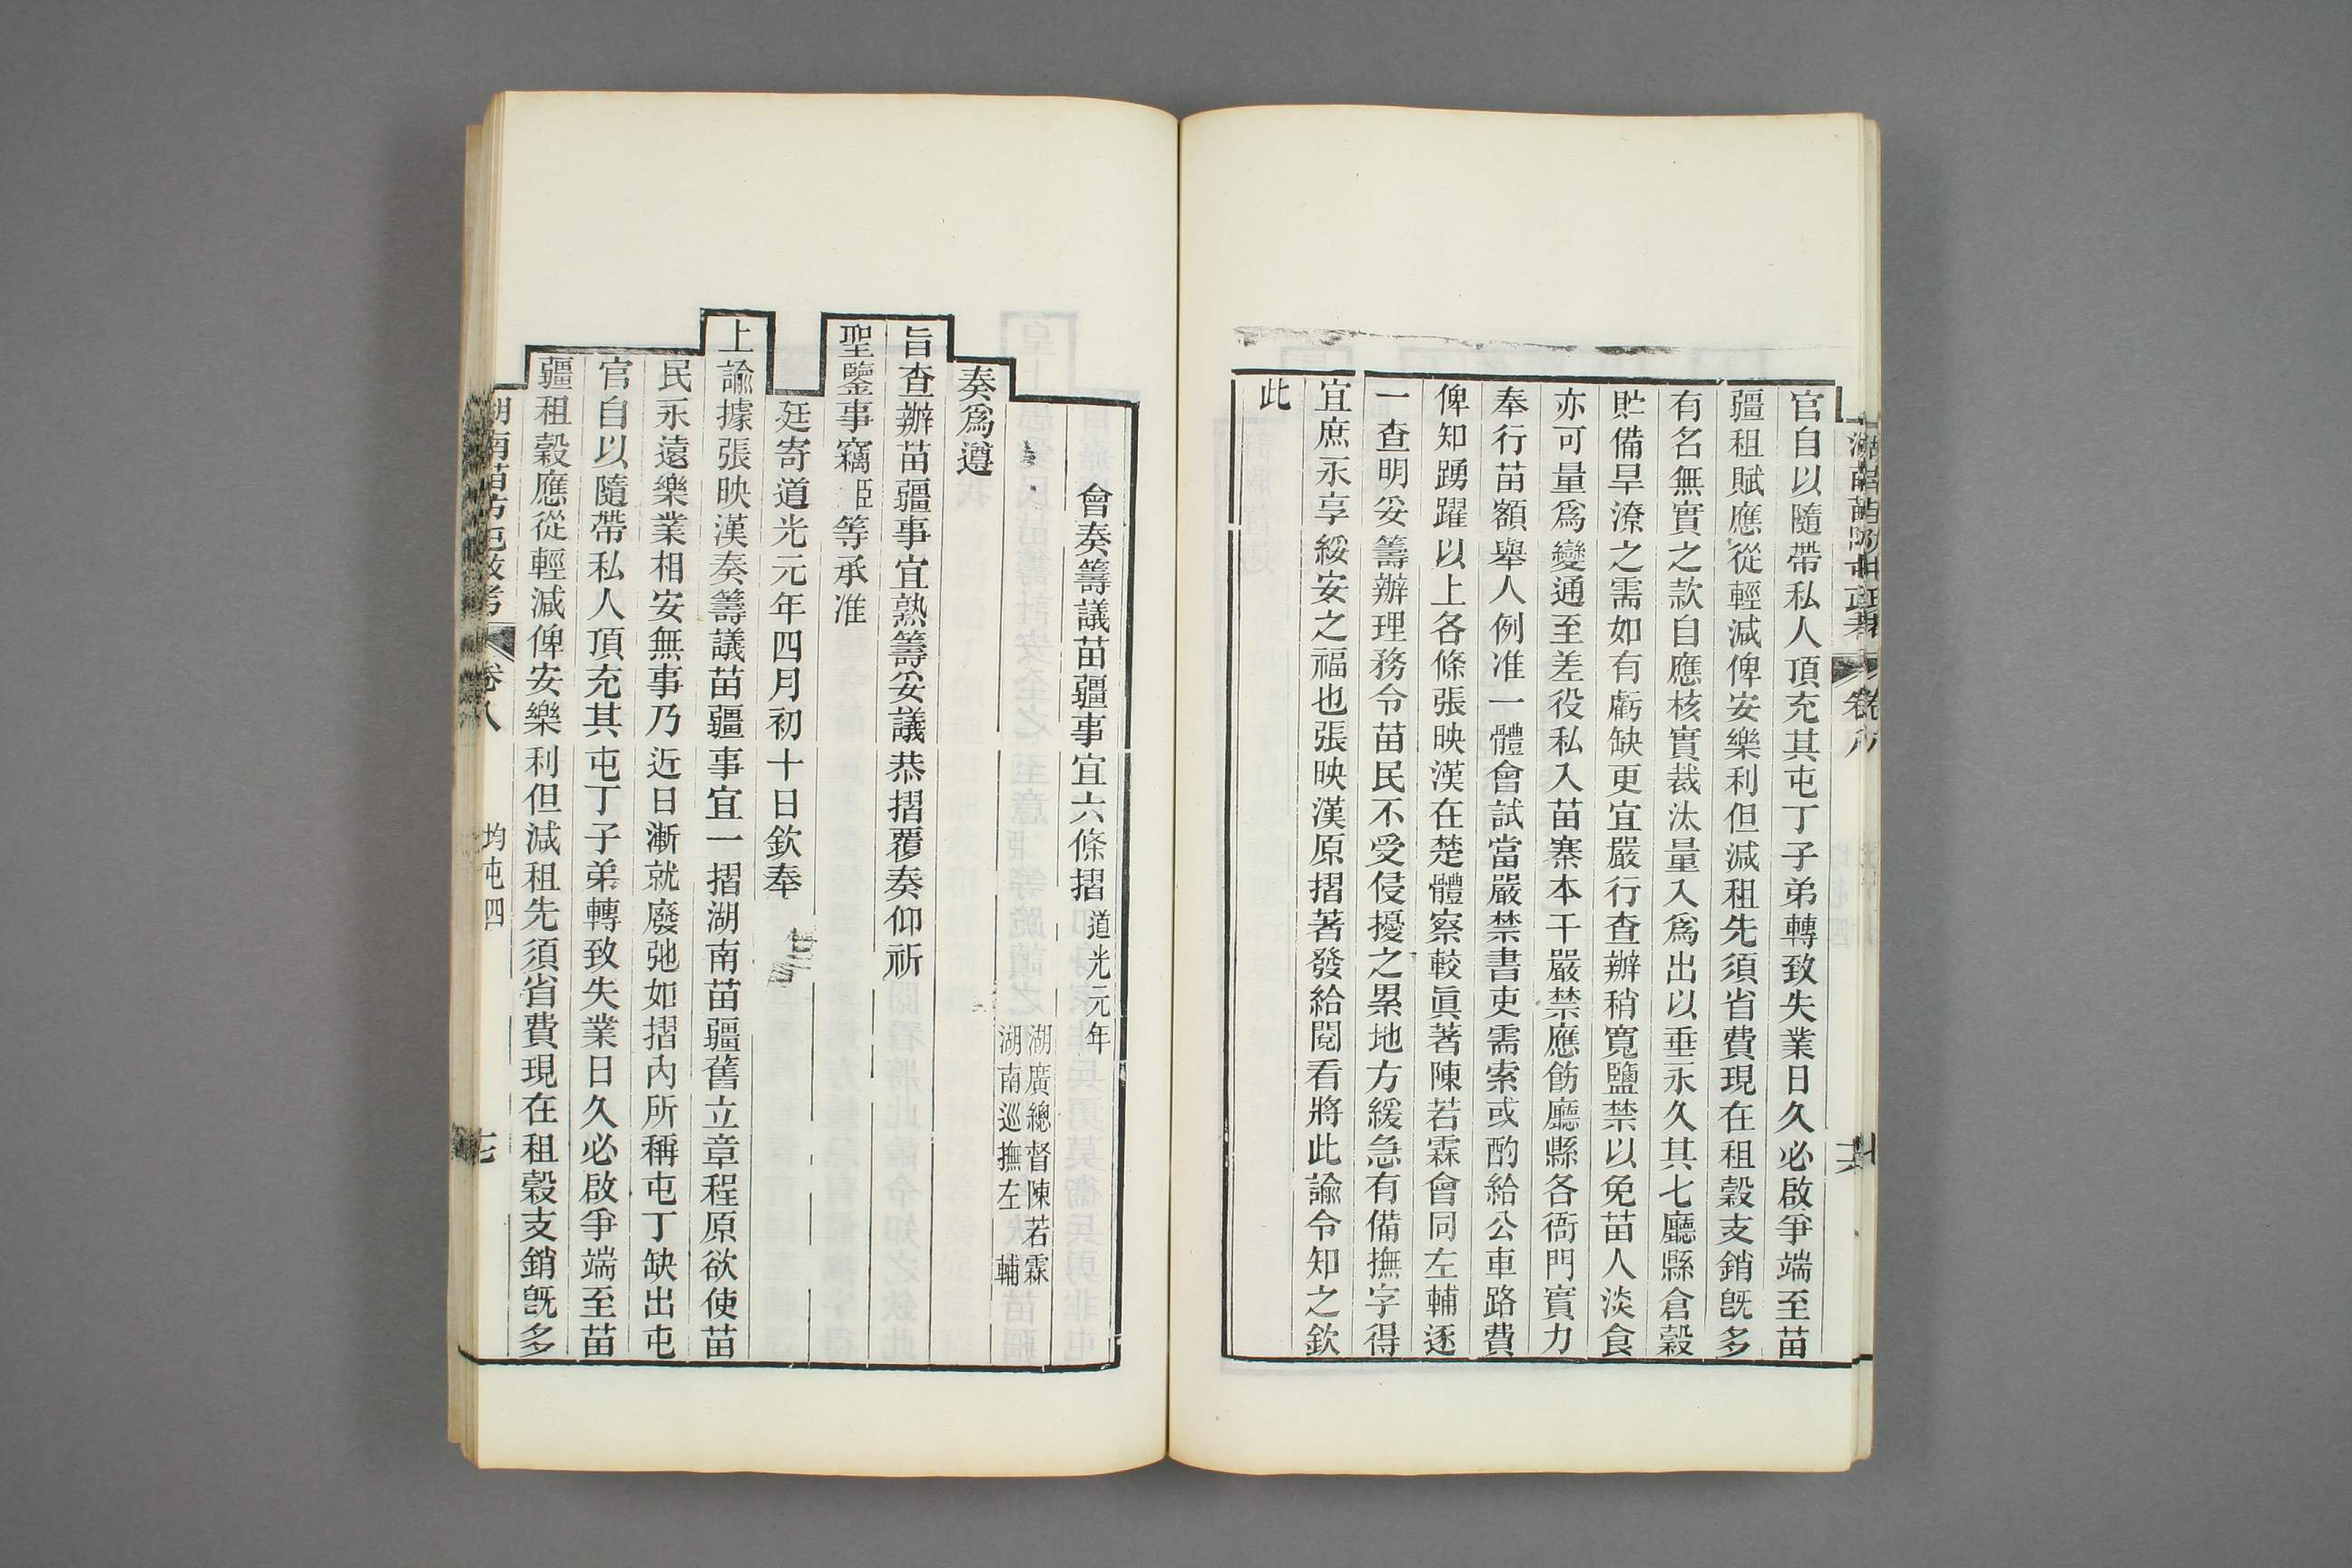 官自以隨帶私人頂充其屯丁子弟轉致失業日久必啟爭端至苗
疆租賦應從輕減俾安樂利但減租先須省費現在租穀支銷旣多
有名無實之款自應核實裁汰量入爲出以垂永久其七廳縣倉穀
貯備旱潦之需如有虧缺更宜嚴行查辦稍寬鹽禁以免苗人淡食
亦可量爲變通至差役私入苗寨本干嚴禁應飭廳縣各衙門實力
奉行苗額舉人例准一體會試當嚴禁書吏需索或酌給公車路費
俾知踴躍以上各條張映漢在楚體察較眞著陳若霖會同左輔逐
一查明妥籌辦理務令苗民不受侵擾之累地方緩急有備撫字得
宜庶永享綏安之福也張映漢原摺著發給閱看將此諭令知之欽
此
會奏籌議苗疆事宜六條摺 道光元年
湖廣總督陳若霖
湖南巡撫左 輔
奏爲遵
旨查辦苗疆事宜熟籌妥議恭摺覆奏仰祈
聖鑒事竊臣等承准
廷寄道光元年四月初十日欽奉
上諭據張映漢奏籌議苗疆事宜一摺湖南苗疆舊立章程原欲使苗
民永遠樂業相安無事乃近日漸就廢弛如摺內所稱屯丁缺出屯
官自以隨帶私人頂充其屯丁子弟轉致失業日久必啟爭端至苗
疆租穀應從輕減俾安樂利但減租先須省費現在租穀支銷旣多
湖南苗防屯政考 卷八 均屯四